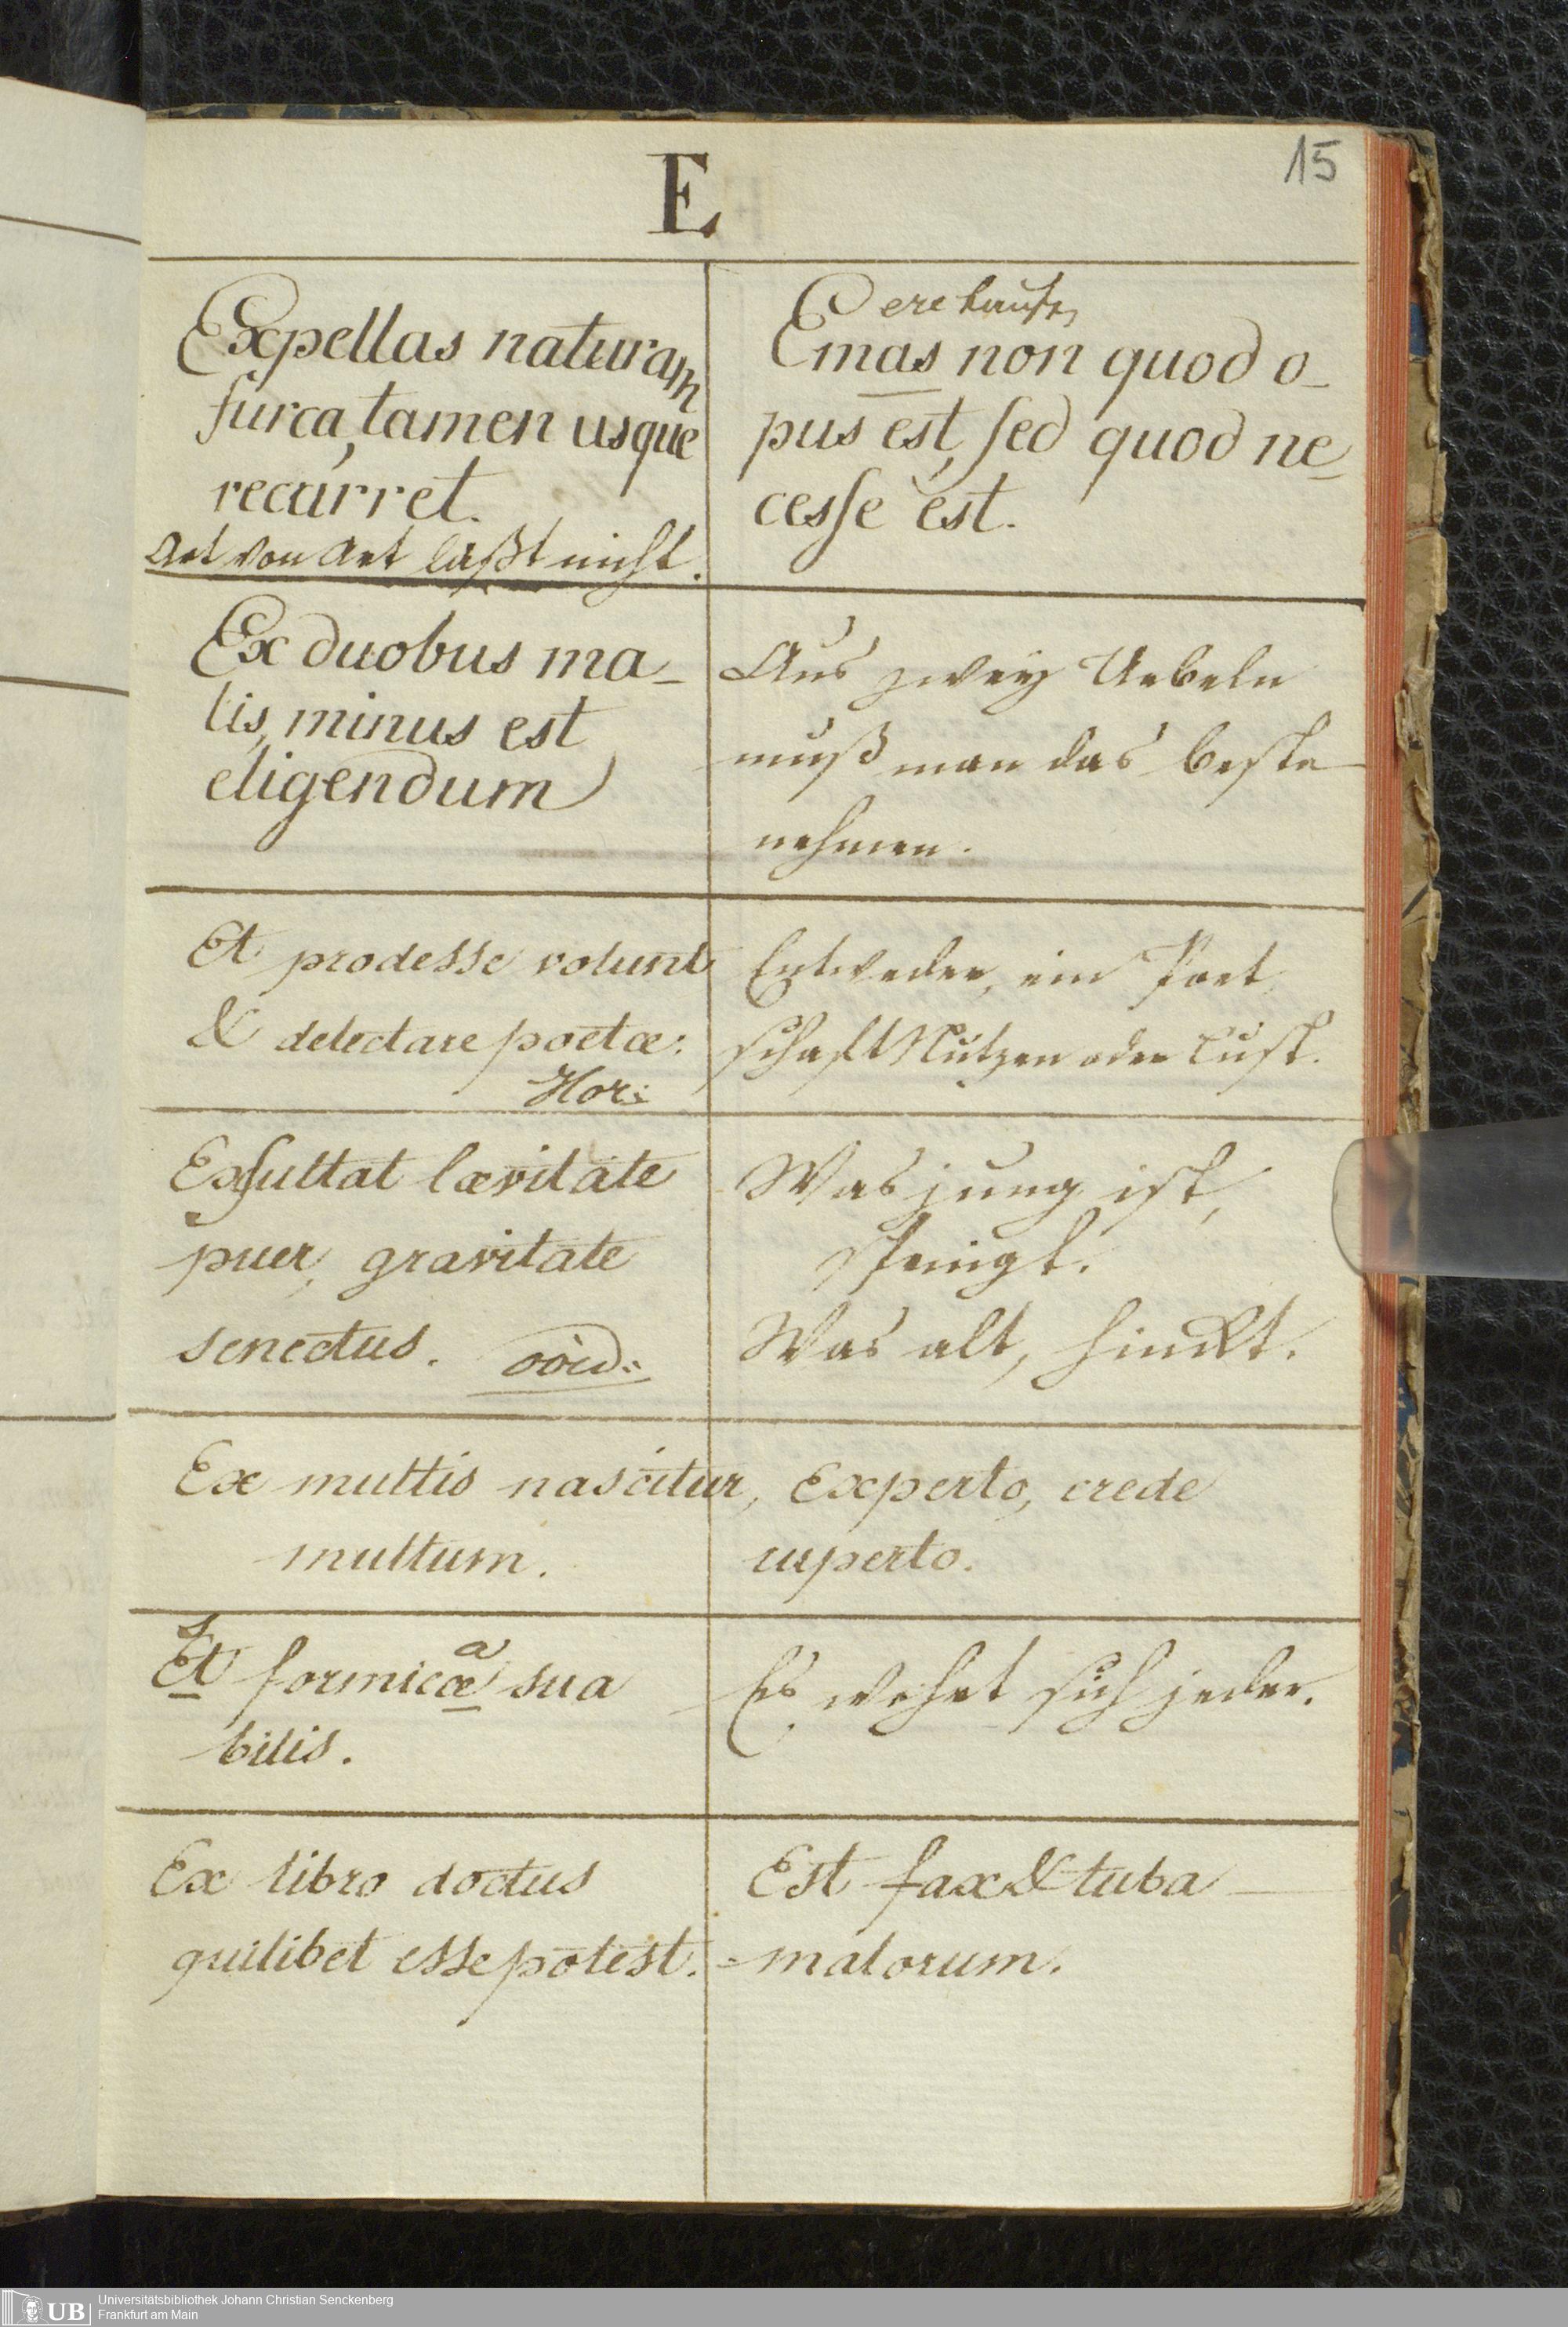 15
E
Expellas naturam
furca, tamen usque
recurret.
Art von Art läßt nicht.
ere kaufen
Emas non quod o-
pus est, sed quod ne-
cesse est.
Ex duobus ma-
lis, minus est
eligendum
Aus zwey Uebeln
muß man das beste
nehmen.
Et prodesse volunt
& delectare poetæ.
Hor:
Entweder, ein Poet
schafft Nutzen oder Lust.
Exsultat lævitate
puer, gravitate
senectus. ovid:
Was jung ist,
springt.
Was alt, hinckt.
Ex multis nascitur,
multum.
Experto, crede
ruperto.
Et formicæ sua
a
bilis.
Es wehrt sich jeder.
Ex libro doctus
quilibet esse potest.
Est fax & tuba
malorum.
UB
Universitätsbibliothek Johann Christian Senckenberg
Frankfurt am Main